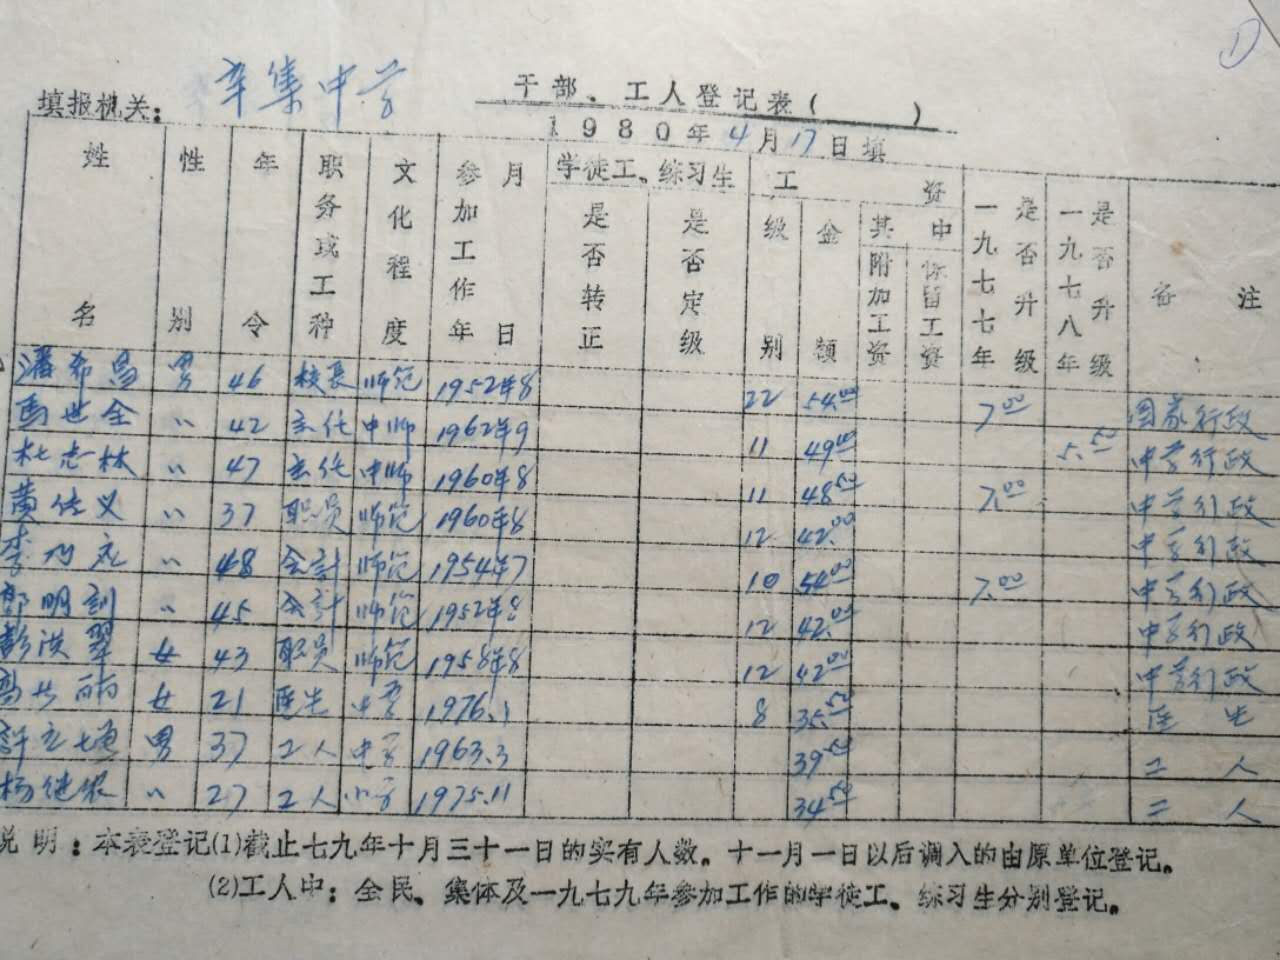 辛集中学
填报机关： 干部、工人登记表( )
1980年4月17日填
姓名 性别 年令 职务或工种 文化程度 参加工作年月日 学徒工、练习生 是否转正 是否定级 工资 级别 金额 其中 附加工资 保留工资 一九七七年是否升级 一九七八年是否升级 备注
男 46 校长 师范 1952年8 22 54.00 7.00 国家行政
马世全 〃 42 主任 中师 1962年9 11 49.00 5.50 中学行政
杜志林 〃 47 主任 中师 1960年8 11 48.50 7.00 中学行政
黄传义 〃 37 职员 师范 1960年8 12 42.00 中学行政
李 〃 48 会计 师范 1954年7 10 54.00 7.00 中学行政
郭明训 〃 45 会计 师范 1952年8 12 42.00 中学行政
彭洪翠 女 43 职员 师范 1958年8 12 42.00 中学行政
女 21 医生 中学 1976.1 8 35.50 医生
许 男 37 工人 中学 1963.3 39.50 工人
杨继 〃 27 工人 小学 1975.11 34.50 工人
说明：本表登记(1)截止七九年十月三十一日的实有人数。十一月一日以后调入的由原单位登记。
(2)工人中：全民、集体及一九七九年参加工作的学徒工、练习生分别登记。